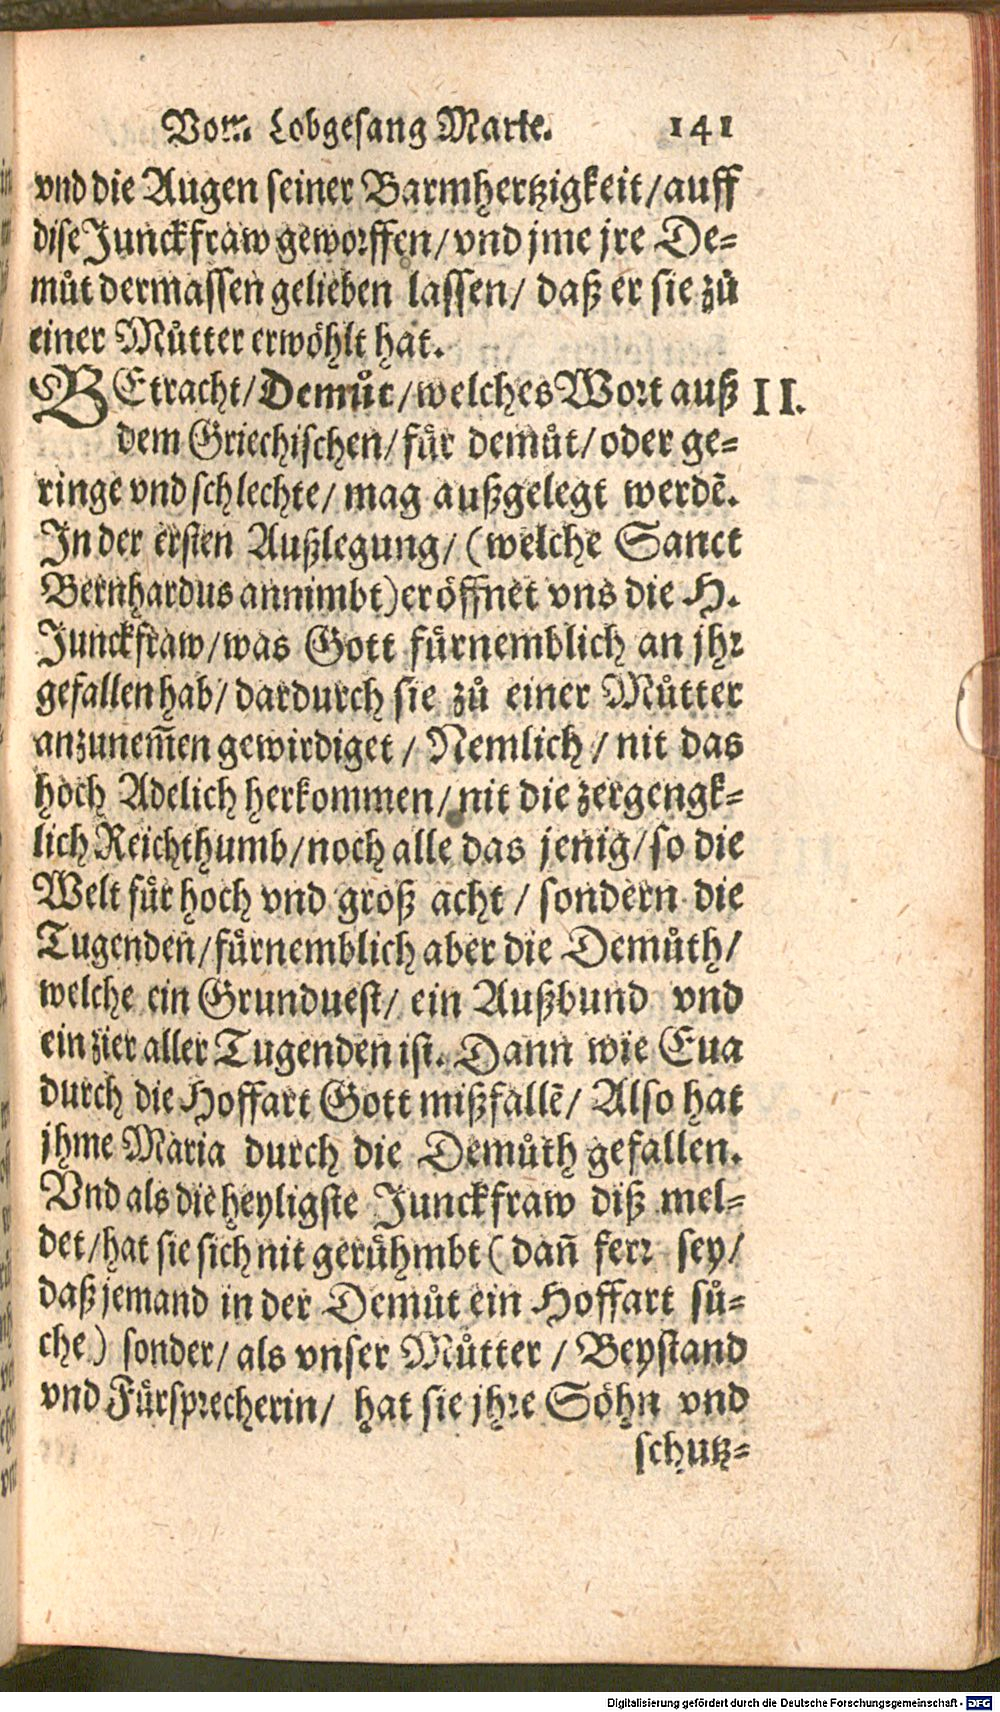 Vom Lobgesang Marie. 141
vnd die Augen seiner Barmhertzigkeit/auff
dise Junckfraw geworffen/vnd jme jre De=
muͦt dermassen gelieben lassen/ daß er sie zuͦ
einer Muͦtter erwöhlt hat.
BEtracht/Demuͦt/welches Wort auß II.
dem Griechischen/für demuͦt/oder ge=
ringe vnd schlechte/ mag außgelegt werdẽ.
In der ersten Außlegung/(welche Sanct
Bernhardus annimbt)eröffnet vns die H.
Junckfraw/was Gott fürnemblich an jhr
gefallen hab/ dardurch sie zuͦ einer Muͦtter
anzunem̃en gewirdiget/ Nemlich/ nit das
hoch Adelich herkommen/nit die zergengk=
lich Reichthumb/noch alle das jenig/so die
Welt für hoch vnd groß acht/ sondern die
Tugenden/fürnemblich aber die Demuͦth/
welche ein Grunduest/ ein Außbund vnd
ein zier aller Tugenden ist. Dann wie Eua
durch die Hoffart Gott mißfallẽ/ Also hat
jhme Maria durch die Demuͦth gefallen.
Vnd als die heyligste Junckfraw diß mel=
det/hat sie sich nit gerühmbt(dañ ferr sey/
daß jemand in der Demuͦt ein Hoffart suͦ=
che) sonder/als vnser Muͦtter/ Beystand
vnd Fürsprecherin/ hat sie jhre Söhn vnd
schutz=
Digitalisierung gefördert durch die Deutsche Forschungsgemeinschaft - DFG